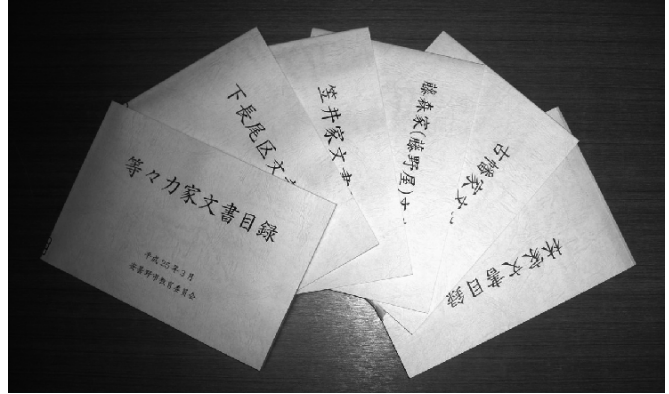 等々力家文書目録
平成25年3月
安曇野市教育委員会
下長尾区文
笠井家文書
藤森家(藤野屋)文
古幡家文
林家文書目録